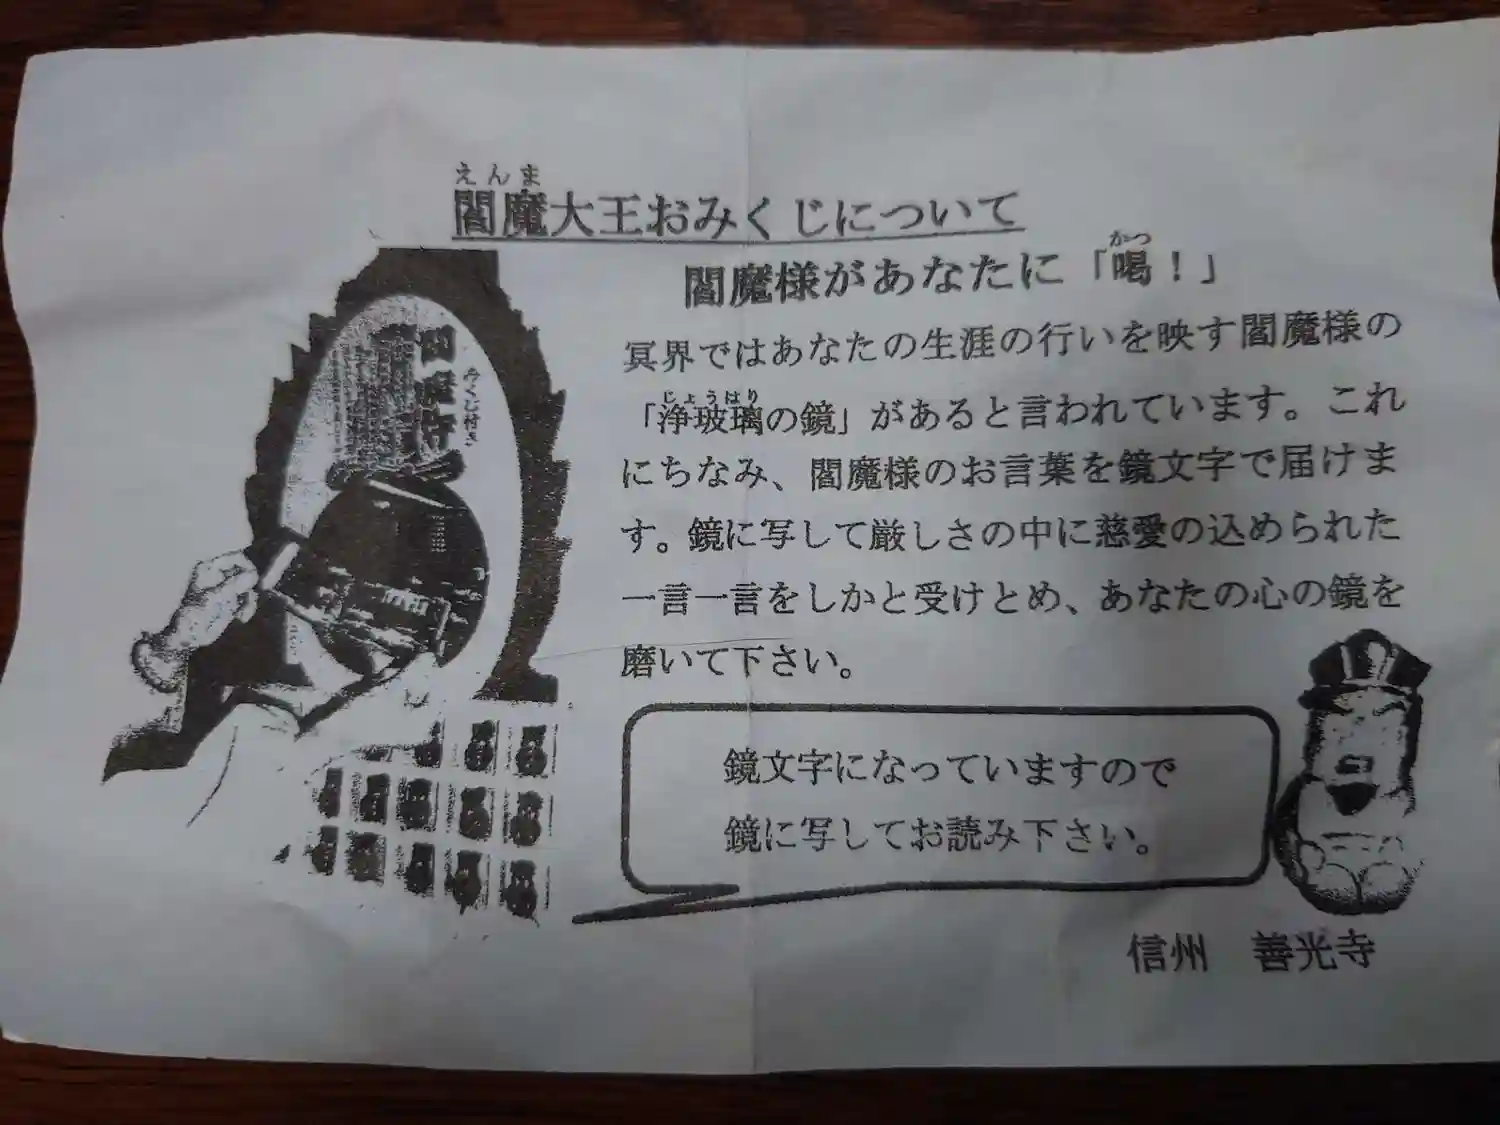 えんま
閻魔大王おみくじについて
かつ
閻魔様があなたに「喝！」
冥界ではあなたの生涯の行いを映す閻魔様の
じょうはり
「浄玻璃の鏡」があると言われています。これ
にちなみ、閻魔様のお言葉を鏡文字で届けま
す。鏡に写して厳しさの中に慈愛の込められた
一言一言をしかと受けとめ、あなたの心の鏡を
磨いて下さい。
鏡文字になっていますので
鏡に写してお読み下さい。
信州　善光寺